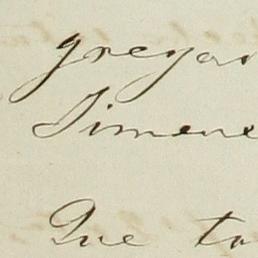 gregar
Simene
Que ta